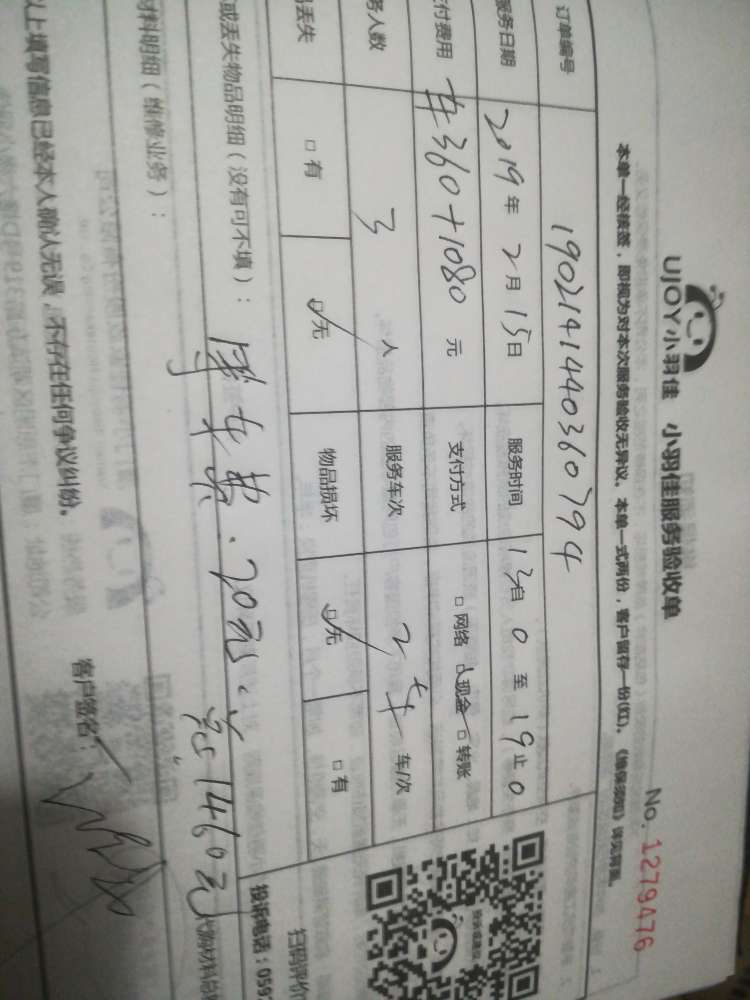 UJOY小羽佳 小羽佳服务验收单
No. 1279476
本单一经核签，即视为对本次服务验收无异议。本单一式两份，客户留存一份(红)。《维保须知》详见背面。
订单编号 190214140360794
服务日期 2019年2月15日 服务时间 13自0至19止0
付费用 车360+1080元 支付方式 □网络 □现金 □转账
务人数 3人 服务车次 2车 车/次
丢失 □有 □无 物品损坏 □无 □有
或丢失物品明细（没有可不填）：
停车费.20元。总1460元
材料明细（维修业务）：
以上填写信息已经本人确认无误，不存在任何争议纠纷。
客户签名：
扫码评价
投诉电话：059